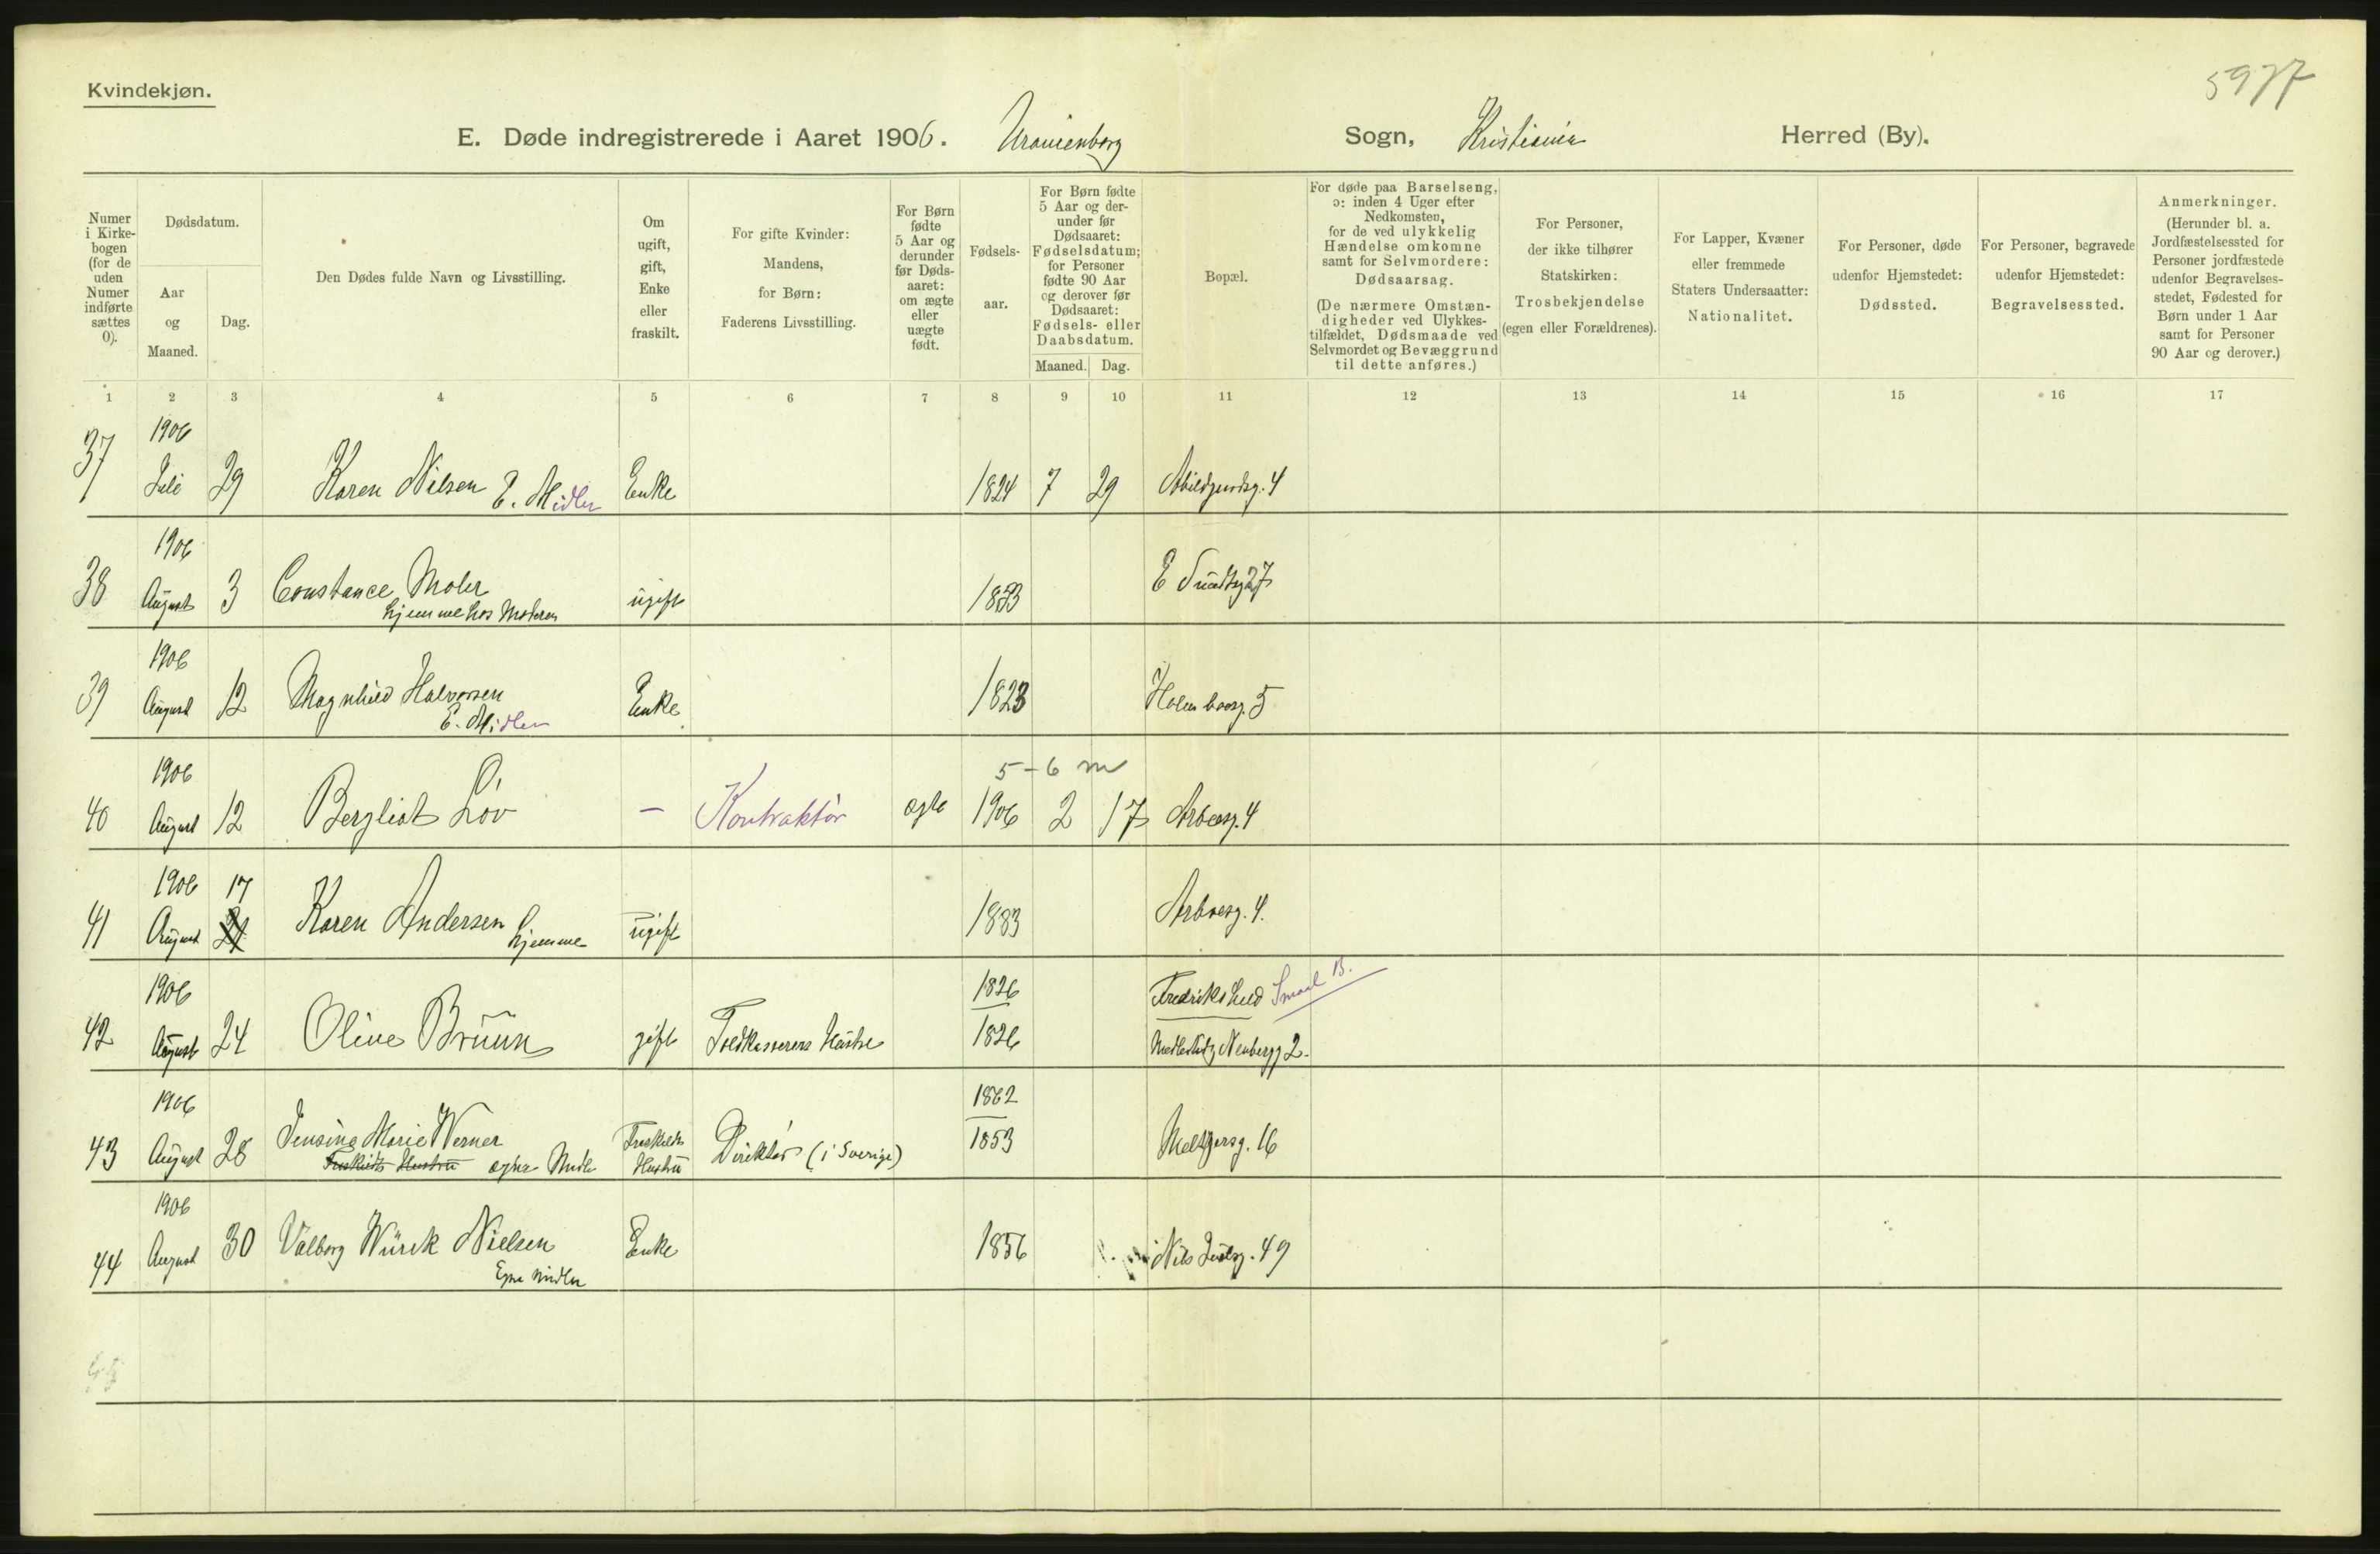 5977
Kvindekjøn.
E. Døde indregistrerede i Aaret 1906. Uranienborg Sogn, Kristiania Herred (By).
Numer i Kirkebogen (for de uden Numer indførte sættes 0).
Dødsdatum.
Aar og Maaned.
Dag.
Den Dødes fulde Navn og Livsstilling.
Om ugift, gift, Enke eller fraskilt.
For gifte Kvinder: Mandens, for Børn: Faderens Livsstilling.
For Børn fødte 5 Aar og derunder før Dødsaaret: om ægte eller uægte født.
Fødselsaar.
For Børn fødte 5 Aar og derunder før Dødsaaret: Fødselsdatum; for Personer fødte 90 Aar og derover før Dødsaaret: Fødsels- eller Daabsdatum.
Maaned. Dag.
Bopæl.
For døde paa Barselseng, ɔ: inden 4 Uger efter Nedkomsten, for de ved ulykkelig Hændelse omkomne samt for Selvmordere: Dødsaarsag.
(De nærmere Omstændigheder ved Ulykkestilfældet, Dødsmaade ved Selvmordet og Bevæggrund til dette anføres.)
For Personer, der ikke tilhører Statskirken: Trosbekjendelse (egen eller Forældrenes).
For Lapper, Kvæner eller fremmede Staters Undersaatter: Nationalitet.
For Personer, døde udenfor Hjemstedet: Dødssted.
For Personer, begravede udenfor Hjemstedet: Begravelsessted.
Anmerkninger.
(Herunder bl. a. Jordfæstelsessted for Personer jordfæstede udenfor Begravelsesstedet, Fødested for Børn under 1 Aar samt for Personer 90 Aar og derover.)
1 2 3 4 5 6 7 8 9 10 11 12 13 14 15 16 17
1906
37 Juli 29 Karen Nilsen E. Midler Enke 1824 7 29 Abildgaardsg. 4
1906
38 August 3 Constance Mohr ugift 1853 E Sundtsg 27
hjemme hos Moderen
1906
39 August 12 Magnhild Halvorsen Enke 1823 Holmboesg. 5
E. Midler
1906 5-6 m
40 August 12 Bergliot Löv — Kontraktör ægte 1906 2 17 Arboesg. 4
1906 17
41 August 21 Karen Andersen hjemme ugift 1883 Arboesg. 4.
1906 1826 Fredrikshald Smaal B.
42 August 24 Olive Bruun gift Toldkasserers Hustru 1826 Neubergg 2.
1906 1862
43 August 28 Jensine Marie Werner Fraskilt Direktør (i Sverige) 1853 Meltzersg. 16
Fraskilts Hustru egne Midler Hustru
1906
44 August 30 Valborg Würck Nielsen Enke 1856 Nils Juelsg. 49
Egne midler